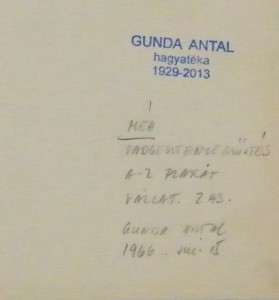 GUNDA ANTAL
hagyatéka
1929-2013
MÉH
VADGESZTENYEGYŰJTÉS
A-2 PLAKÁT
VÁZLAT. 2 db.
GUNDA ANTAL
1966